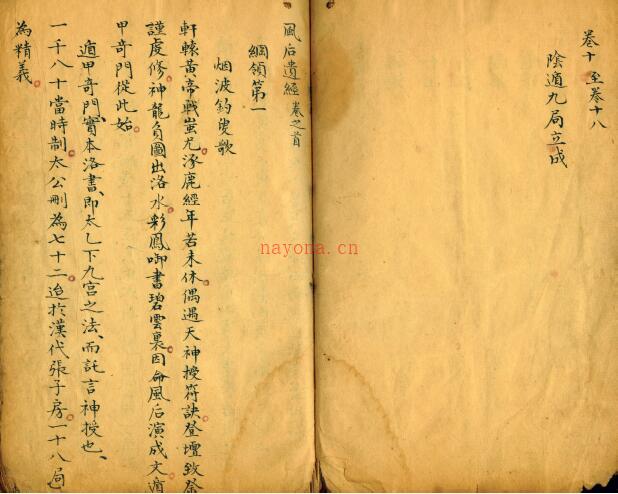 卷十 至卷十八
陰遁九局立成
風后遺經 卷之首
綱領第一
烟波釣叟歌
軒轅黃帝戰蚩尤涿鹿經年若未休偶遇天神授符訣登壇致祭
謹虔修神龍負圖出洛水彩鳳啣書碧雲裏因命風后演成文遁
甲奇門從此始
遁甲奇門、實本洛書、即太乙下九宮之法、而託言神授也、
一千八十當時制太公刪為七十二迨於漢代張子房一十八局
為精義
nayona.cn